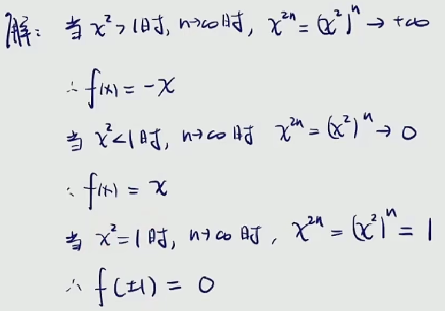 解：当 x²>1时, n→∞时, x²ⁿ=(x²)ⁿ→+∞
∴ f(x)=-x
当 x²<1时, n→∞时 x²ⁿ=(x²)ⁿ→0
∴ f(x)=x
当 x²=1时, n→∞时, x²ⁿ=(x²)ⁿ=1
∴ f(±1)=0